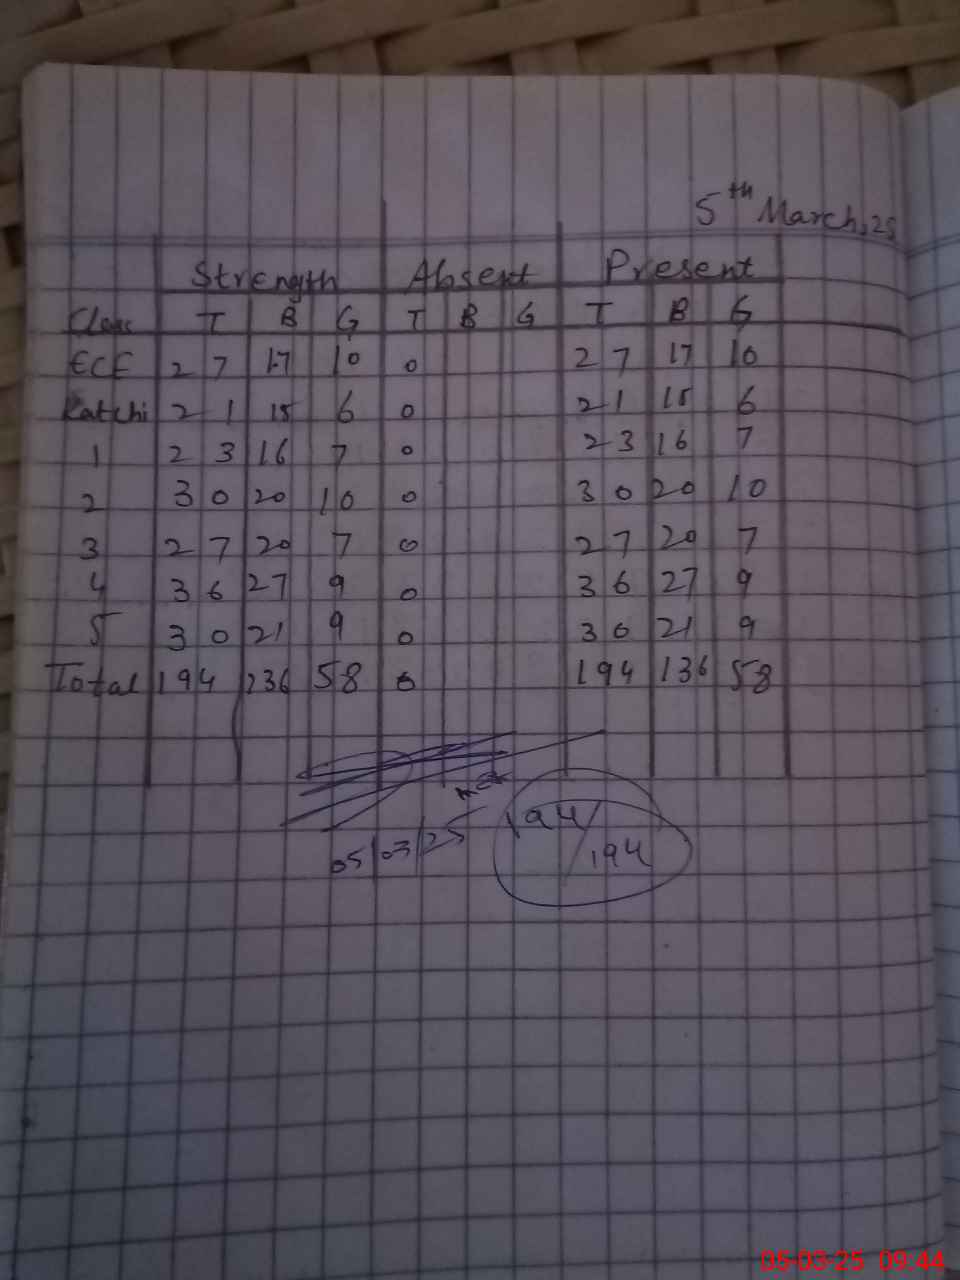 5th March, 25
Strength Absent Present
Class T B G T B G T B G
ECE 27 17 10 0 27 17 10
Katchi 21 15 6 0 21 15 6
1 23 16 7 0 23 16 7
2 30 20 10 0 30 20 10
3 27 20 7 0 27 20 7
4 36 27 9 0 36 27 9
5 30 21 9 0 30 21 9
Total 194 136 58 0 194 136 58
05/03/25
194/194
05-03-25 09:44